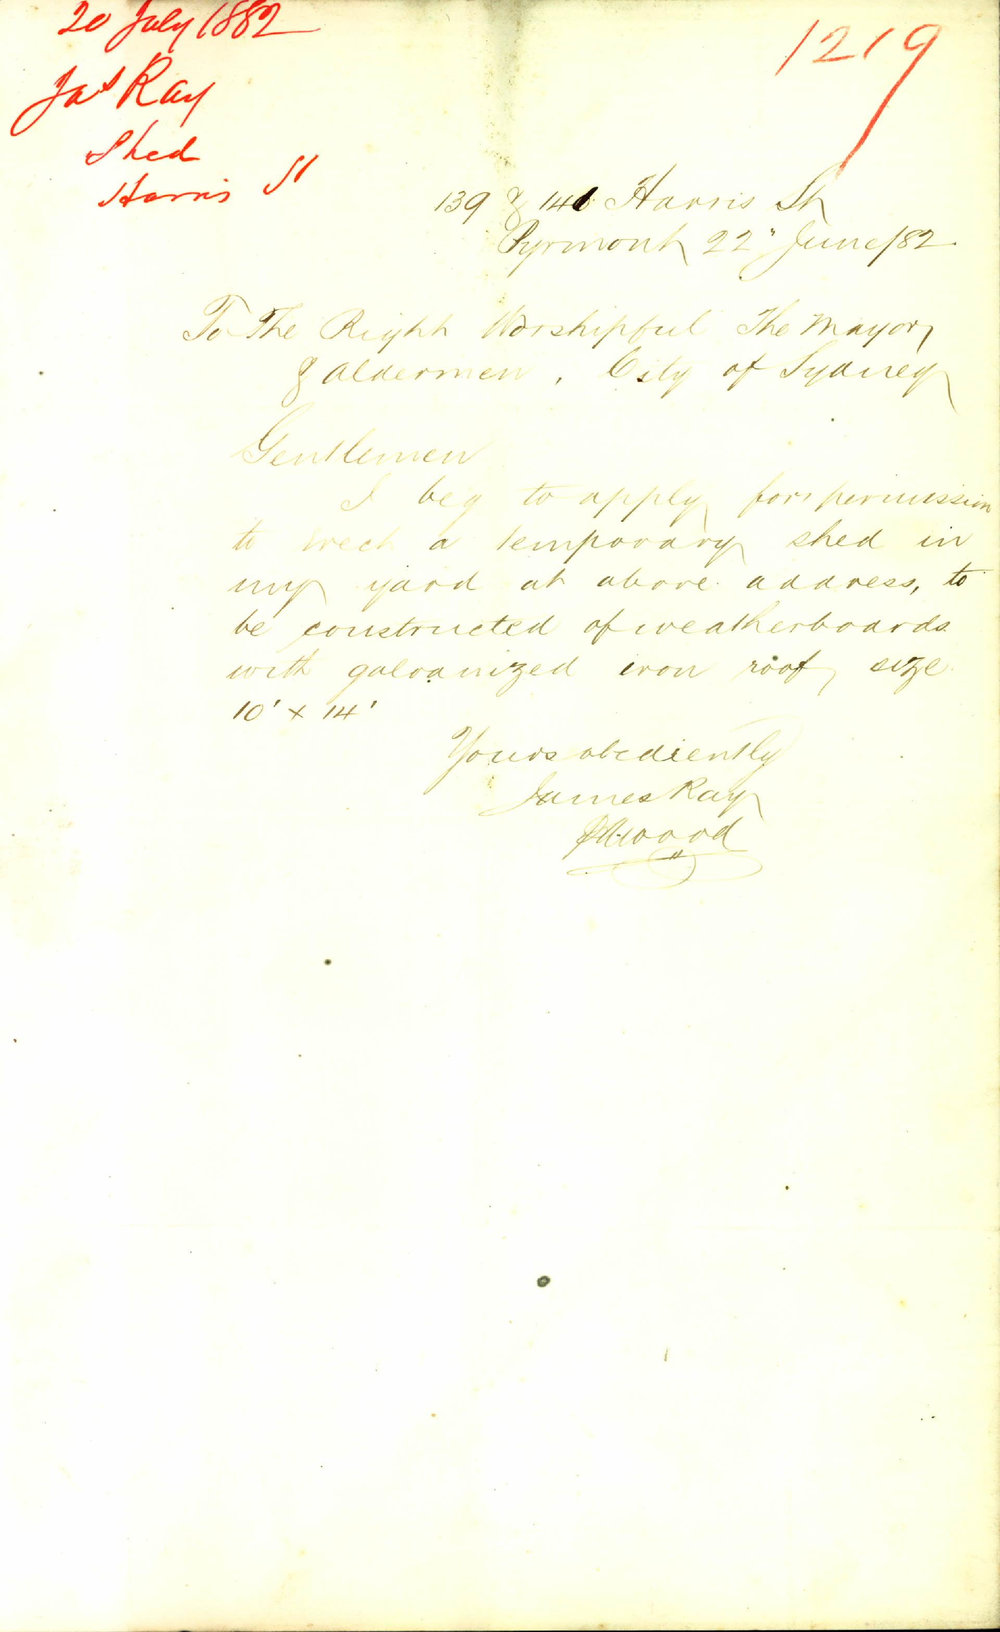 20 July 1882
Jas Ray
Shed
Harris St
1219
139 & 141 Harris St
Pyrmont 22" June/82
To The Right Worshipful The Mayor
& Aldermen, City of Sydney
Gentlemen
I beg to apply for permission
to erect a temporary shed in
my yard at above address, to
be constructed of weatherboards
with galvanized iron roof, size
10' x 14'
Yours obediently
James Ray